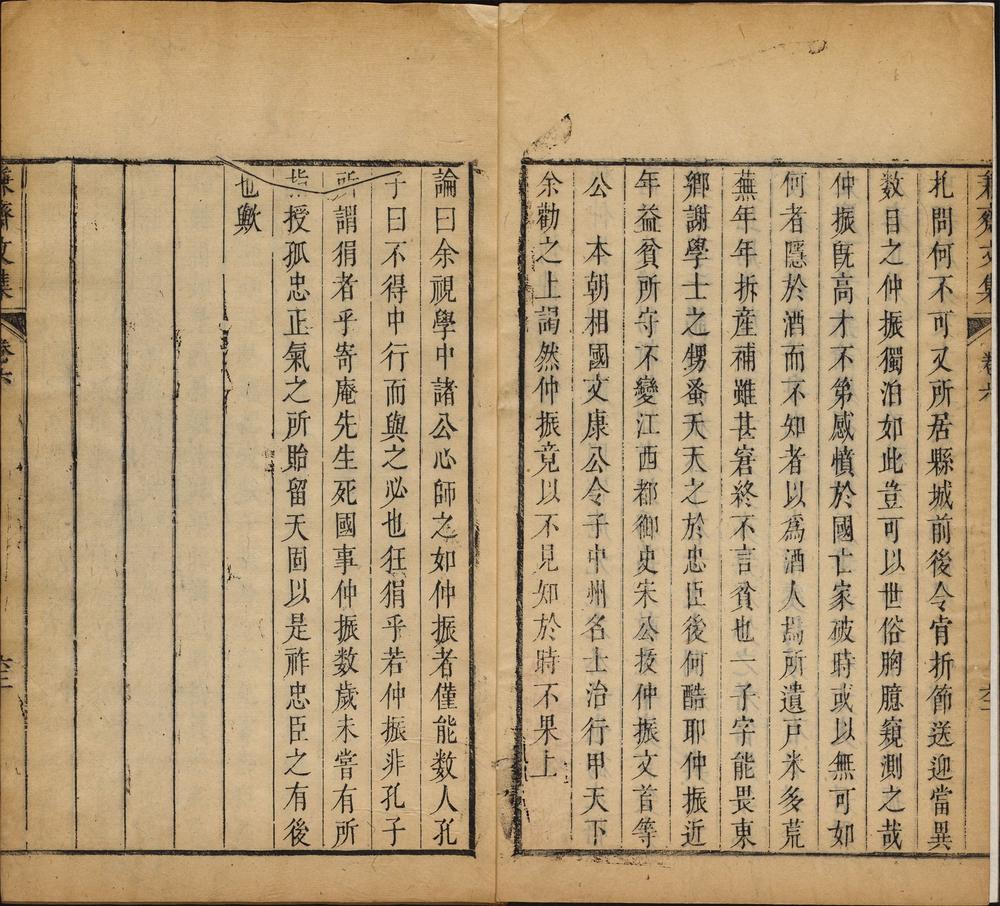 兼齋文集
卷六
六二
扎問何不可又所居縣城前後令肯折節送迎當異
数目之仲振獨泊如此豈可以世俗胸臆窺測之哉
仲振旣高才不第感憤於國亡家破時或以無可如
何者隱於酒而不知者以爲酒人焉所遺戸米多荒
蕪年年拆産補雖甚窘終不言貧也一子字能畏東
鄉謝學士之甥蚤夭天之於忠臣後何酷耶仲振近
年益貧所守不變江西都御史宋公扳仲振文首等
公 本朝相國文康公令子中州名士治行甲天下
余勸之上謁然仲振竟以不見知於時不果上
論曰余視學中諸公心師之如仲振者僅能数人孔
子曰不得中行而與之必也狂狷乎若仲振非孔子
所謂狷者乎寄庵先生死國事仲振数歲未嘗有所
指授孤忠正氣之所貽留天固以是祚忠臣之有後
也歟
兼齋文集
卷六
六三